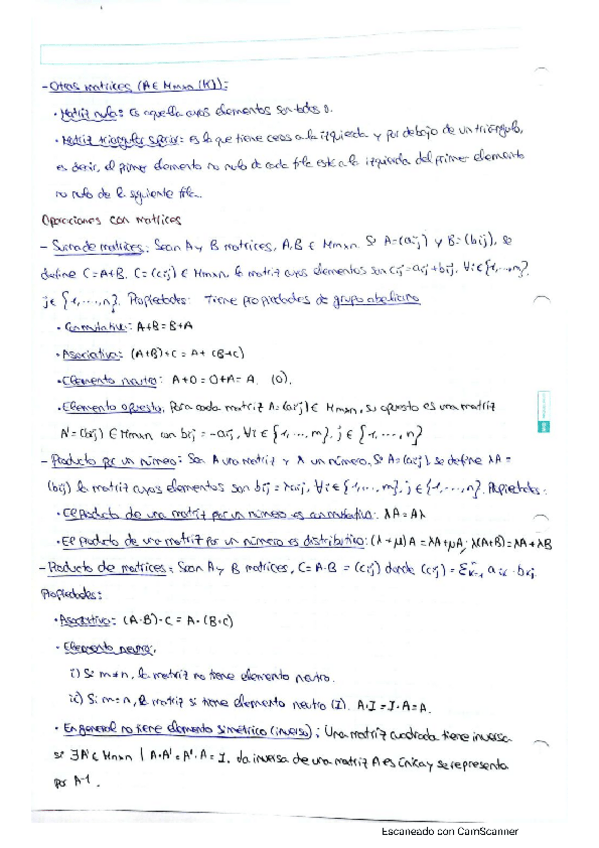 - Otras matrices (A∈ Mmxn (K)):
· Matriz nula: es aquella cuyos elementos son todos 0.
· Matriz triangular superior: es la que tiene ceros a la izquierda y por debajo de un triángulo,
es decir, el primer elemento no nulo de cada fila está a la izquierda del primer elemento
no nulo de la siguiente fila.
Operaciones con matrices
- Suma de matrices: Sean A y B matrices, A,B ∈ Mmxn. Si A=(aij) y B=(bij), se
define C=A+B. C=(cij) ∈ Mmxn, la matriz cuyos elementos son cij=aij+bij, ∀i∈{1,...,m},
j∈{1,...,n}. Propiedades: Tiene propiedades de grupo abeliano
· Conmutativa: A+B=B+A
· Asociativa: (A+B)+C = A+(B+C)
· Elemento neutro: A+0=0+A=A. (0).
· Elemento opuesto. Para cada matriz A=(aij)∈ Mmxn, su opuesto es una matriz
A'=(bij) ∈ Mmxn con bij=-aij, ∀i∈{1,...,m}, j∈{1,...,n}
- Producto por un número: Sean A una matriz y λ un número. Si A=(aij), se define λA=
(bij) la matriz cuyos elementos son bij=λaij, ∀i∈{1,...,m}, j∈{1,...,n}. Propiedades:
· El producto de una matriz por un número es conmutativo: λA=Aλ
· El producto de una matriz por un número es distributivo: (λ+μ)A=λA+μA; λ(A+B)=λA+λB
- Producto de matrices: Sean A y B matrices, C=A·B=(cij) donde (cij)=Σk=1 aik·bkj.
Propiedades:
· Asociativa: (A·B)·C=A·(B·C)
· Elemento neutro.
i) Si m≠n, la matriz no tiene elemento neutro.
ii) Si m=n, la matriz si tiene elemento neutro (I). A·I=I·A=A.
· En general no tiene elemento simétrico (inverso): Una matriz cuadrada tiene inversa
si ∃A'∈ Mnxn | A·A'=A'·A=I. La inversa de una matriz A es única y se representa
por A-1.
Escaneado con CamScanner